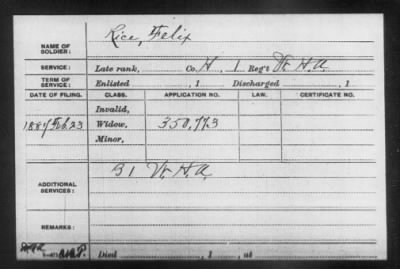 NAME OF SOLDIER: Rice, Felix
SERVICE: Late rank, Co. H, 1 Reg't Vt. H.A.
TERM OF SERVICE: Enlisted , 1 Discharged , 1
DATE OF FILING. CLASS. APPLICATION NO. LAW. CERTIFICATE NO.
Invalid,
1887 Feb. 23 Widow, 350,773
Minor,
ADDITIONAL SERVICES: B 1 Vt. H.A.
REMARKS:
Died , 1 , at